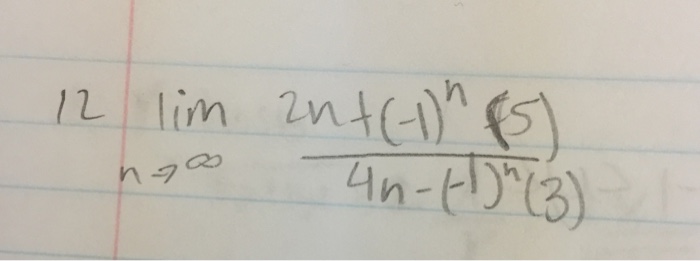 12 lim 2n+(-1)ⁿ (5)
n→∞ 4n-(-1)ⁿ(3)